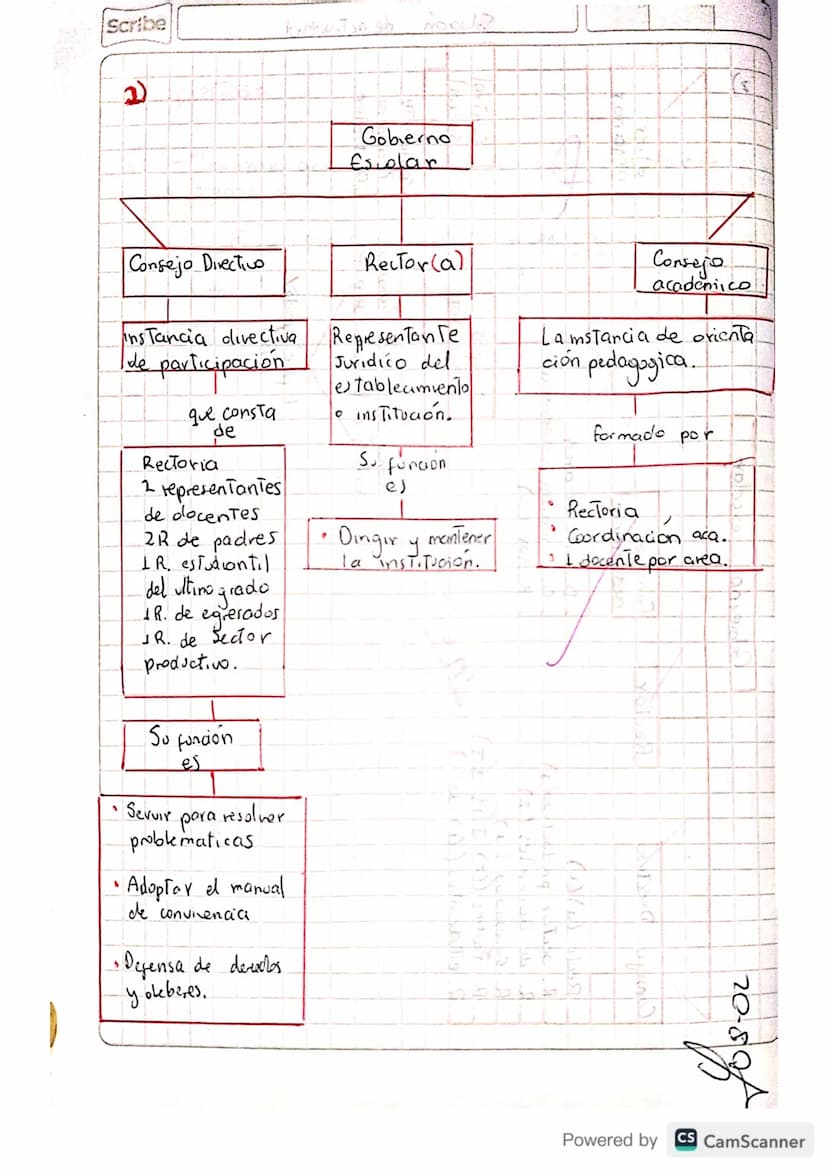 Scribe
2)
Gobierno
Escolar
Consejo Directivo
Rector(a)
Consejo
académico
instancia directiva
de participación
Representante
Juridico del
establecimiento
o institución.
La instancia de orienta
ción pedagogica.
que consta
de
Su función
es
formado por
Rectoria
2 representantes
de docentes
2R de padres
1 R. estudiantil
del ultimo grado
1R. de egresados
1R. de Sector
productivo.
• Dirigir y mantener
la institución.
• Rectoria
• Coordinación aca.
• 1 docente por area.
Su función
es
• Servir para resolver
problematicas
• Adoptar el manual
de convivencia
• Defensa de derechos
y deberes.
20-802
Powered by CS CamScanner